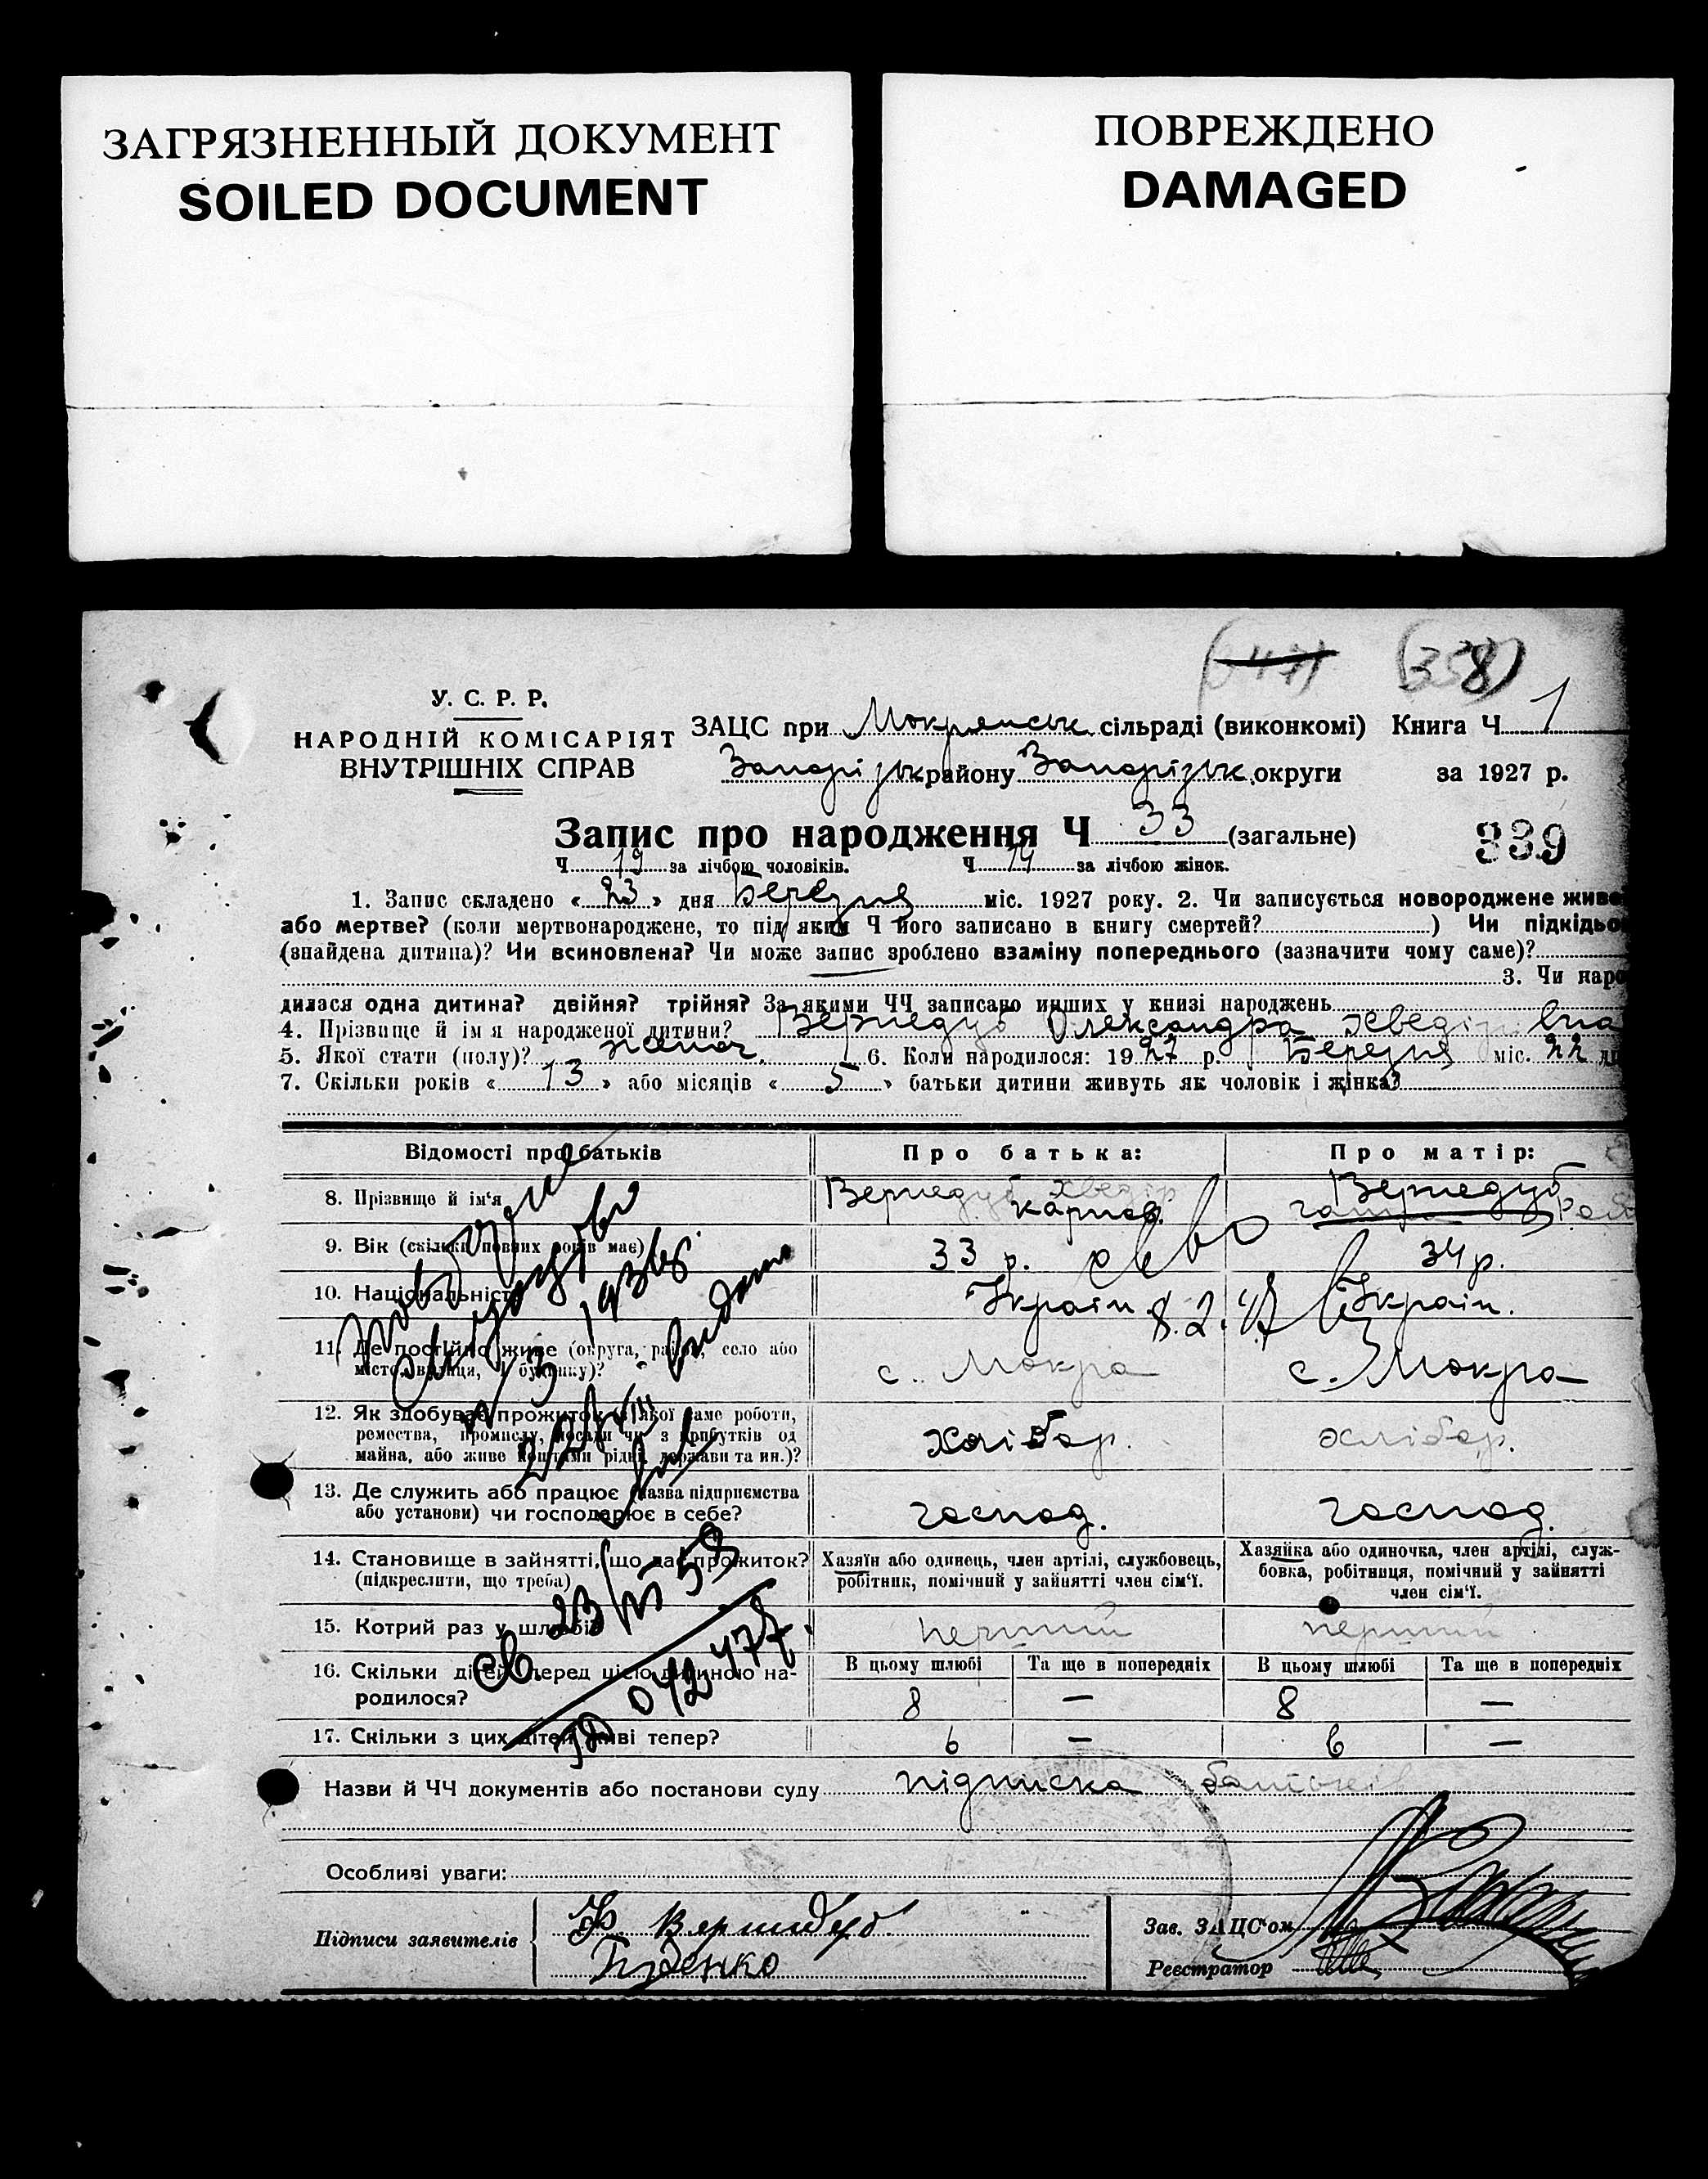 ЗАГРЯЗНЕННЫЙ ДОКУМЕНТ
SOILED DOCUMENT
ПОВРЕЖДЕНО
DAMAGED
(358)
У. С. Р. Р.
НАРОДНІЙ КОМІСАРІЯТ
ВНУТРІШНІХ СПРАВ
ЗАЦС при Мокрянськ сільраді (виконкомі) Книга Ч 1
Запорізьк району Запорізьк округи за 1927 р.
Запис про народження Ч 33 (загальне)
339
Ч 19 за лічбою чоловіків. Ч 14 за лічбою жінок.
1. Запис складено « 23 » дня Березня міс. 1927 року. 2. Чи записується новороджене живе
або мертве? (коли мертвонароджене, то під яким Ч його записано в книгу смертей? ) Чи підкідьо
(знайдена дитина)? Чи всиновлена? Чи може запис зроблено взаміну попереднього (зазначити чому саме)?
3. Чи наро
дилася одна дитина? двійня? трійня? За якими ЧЧ записано инших у книзі народжень
4. Прізвище й ім'я народженої дитини? Вернедуб Олександра Хведорівна
5. Якої стати (полу)? жіноч. 6. Коли народилося: 1927 р. Березня міс. 22 д
7. Скільки років « 13 » або місяців « 5 » батьки дитини живуть як чоловік і жінка?
Відомості про батьків Про батька: Про матір:
8. Прізвище й ім'я Вернедуб Хведір Карпов. Вернедуб
9. Вік (скільки повних років має) 33 р. 34 р.
10. Національність Україн. 8.2.47 Україн.
11. Де постійно живе (округа, район, село або с. Мокра с. Мокра
місто, вулиця, Ч будинку)?
12. Як здобуває прожиток (з якої саме роботи,
ремества, промислу, посади чи з прибутків од Хлібор. Хлібор.
майна, або живе коштами рідні, держави та ин.)?
13. Де служить або працює (назва підприємства
або установи) чи господарює в себе? господ. господ.
14. Становище в зайнятті, що дає прожиток? Хазяїн або одинець, член артілі, службовець, Хазяйка або одиночка, член артілі, служ-
(підкреслити, що треба) робітник, помічний у зайнятті член сім'ї. бовка, робітниця, помічний у зайнятті
член сім'ї.
15. Котрий раз у шлюбі? перший перший
16. Скільки дітей перед цією дитиною на- В цьому шлюбі Та ще в попередніх В цьому шлюбі Та ще в попередніх
родилося? 8 — 8 —
17. Скільки з цих дітей живі тепер? 6 — 6 —
Назви й ЧЧ документів або постанови суду підписка батьків
Особливі уваги:
Підписи заявителів Ф. Вернидуб
Буденко
Зав. ЗАЦС'ом
Реєстратор